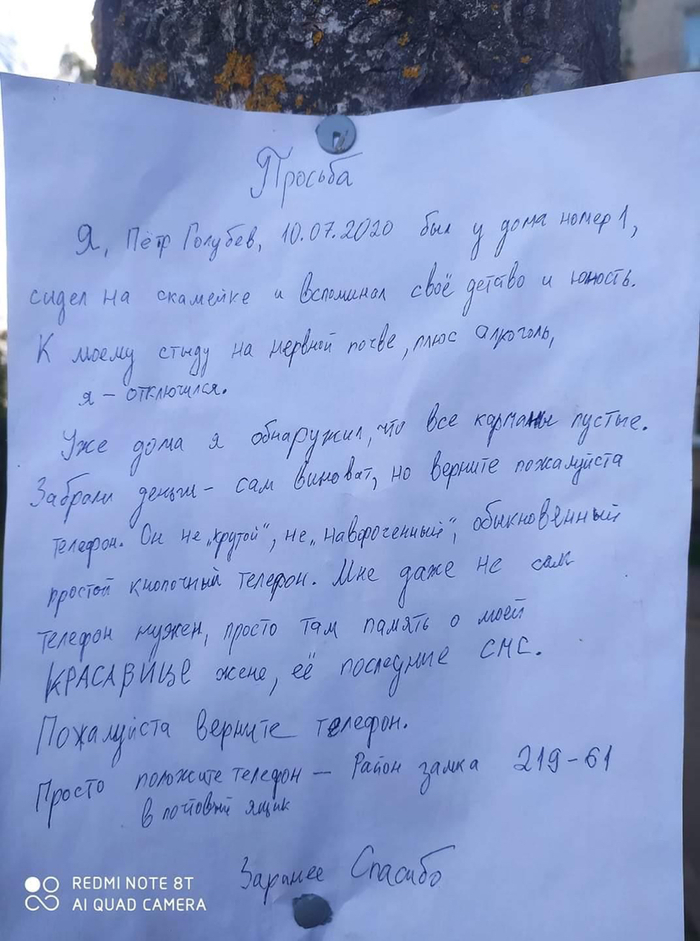 Просьба
Я, Пётр Голубев, 10.07.2020 был у дома номер 1,
сидел на скамейке и вспоминал своё детство и юность.
К моему стыду на нервной почве, плюс алкоголь,
я - отключился.
Уже дома я обнаружил, что все карманы пустые.
Забрали деньги - сам виноват, но верните пожалуйста
телефон. Он не "крутой", не "навороченный", обыкновенный
простой кнопочный телефон. Мне даже не сам
телефон нужен, просто там память о моей
КРАСАВИЦЕ жене, её последние СМС.
Пожалуйста верните телефон.
Просто положите телефон — Район замка 219-61
в почтовый ящик
Заранее Спасибо
REDMI NOTE 8T
AI QUAD CAMERA